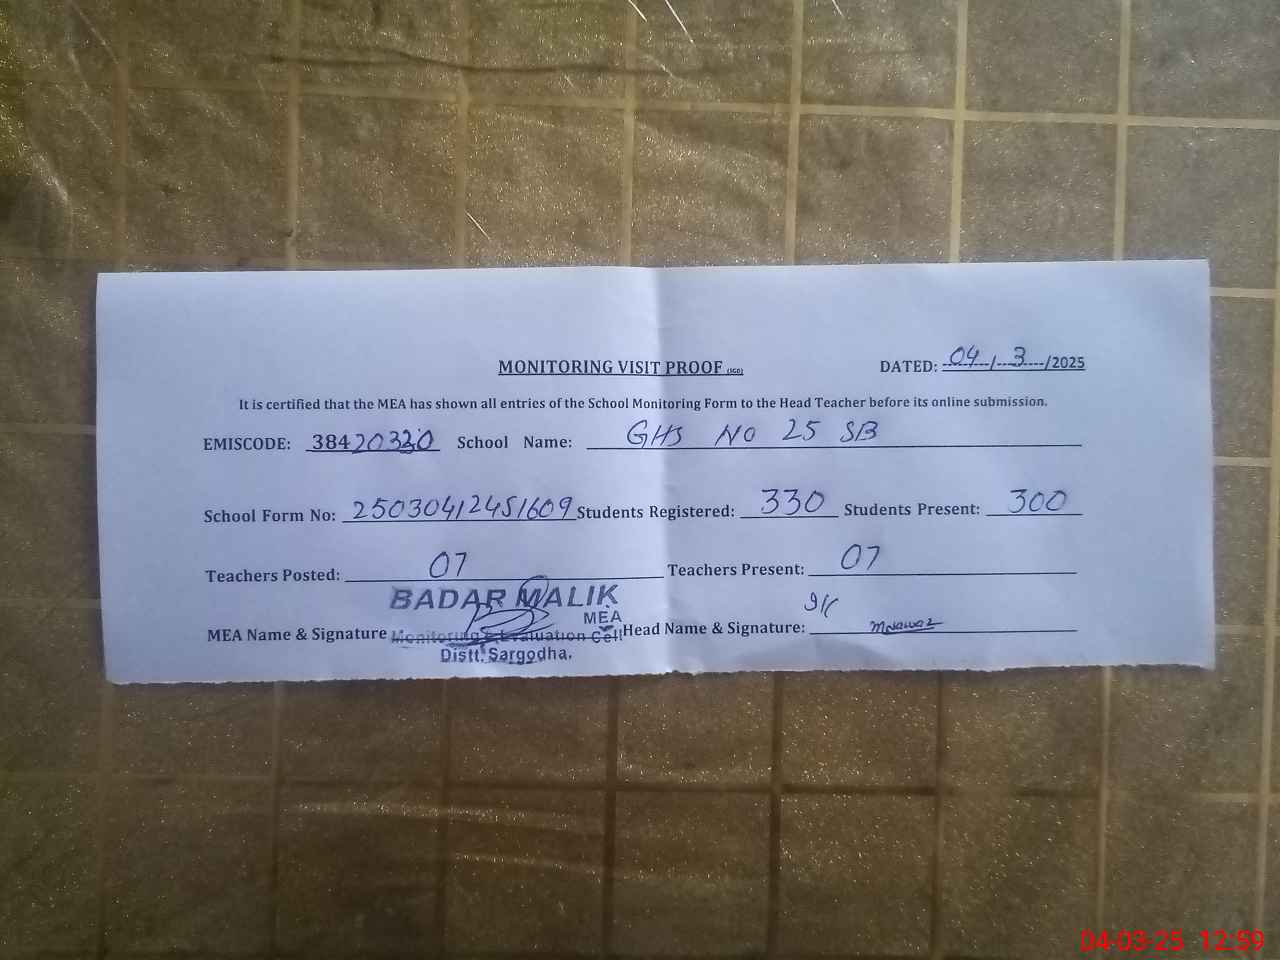 MONITORING VISIT PROOF (SGD)
DATED: 04/3/2025
It is certified that the MEA has shown all entries of the School Monitoring Form to the Head Teacher before its online submission.
EMISCODE: 38420320 School Name: GHS NO 25 SB
School Form No: 25030412451609 Students Registered: 330 Students Present: 300
Teachers Posted: 07 Teachers Present: 07
BADAR MALIK
MEA
MEA Name & Signature Monitoring & Evaluation Cell Head Name & Signature:
Distt. Sargodha.
04-03-25 12:59